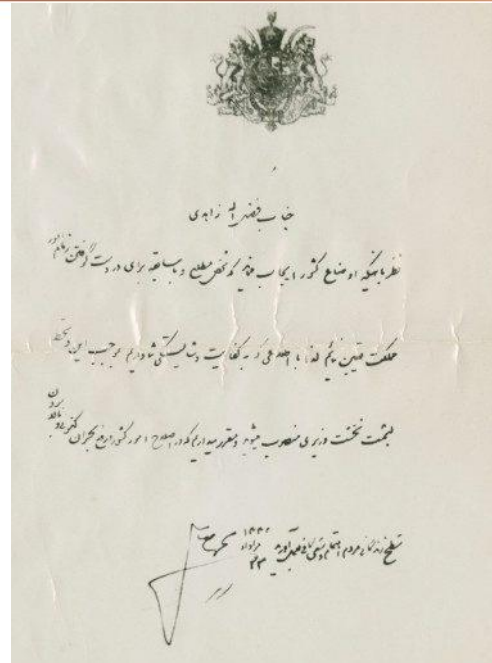 جناب فضل اله زاهدی
نظر باینکه اوضاع کشور ایجاب مینماید که شخص مطلع و با سابقه برای در دست گرفتن زمام امور
مملکت تعیین نمائیم لذا با اطلاعی که به کفایت و شایستگی شما داریم بموجب این دستخط
بسمت نخست وزیری منصوب میشوید و مقرر میداریم که در اصلاح امور کشور و رفع بحران کنونی و بالا بردن
سطح زندگانی مردم اهتمام و سعی کافی بعمل آورید
۱۳۳۲
مرداد
۲۲